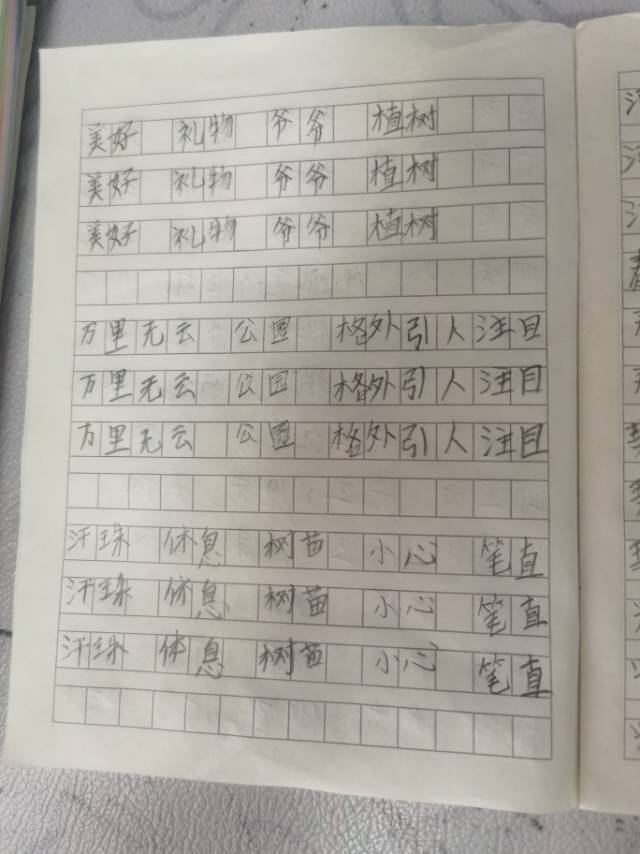 美好 礼物 爷爷 植树
美好 礼物 爷爷 植树
美好 礼物 爷爷 植树
万里无云 公园 格外引人注目
万里无云 公园 格外引人注目
万里无云 公园 格外引人注目
汗珠 休息 树苗 小心 笔直
汗珠 休息 树苗 小心 笔直
汗珠 体息 树苗 小心 笔直